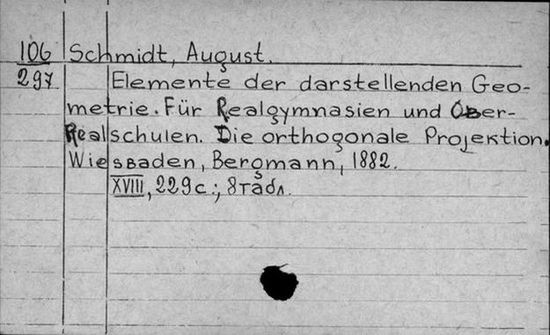 106 Schmidt, August.
297 Elemente der darstellenden Geo-
metrie. Für Realgymnasien und Ober-
Realschulen. Die orthogonale Projektion.
Wiesbaden, Bergmann, 1882.
XVIII, 229 с.; 8 табл.